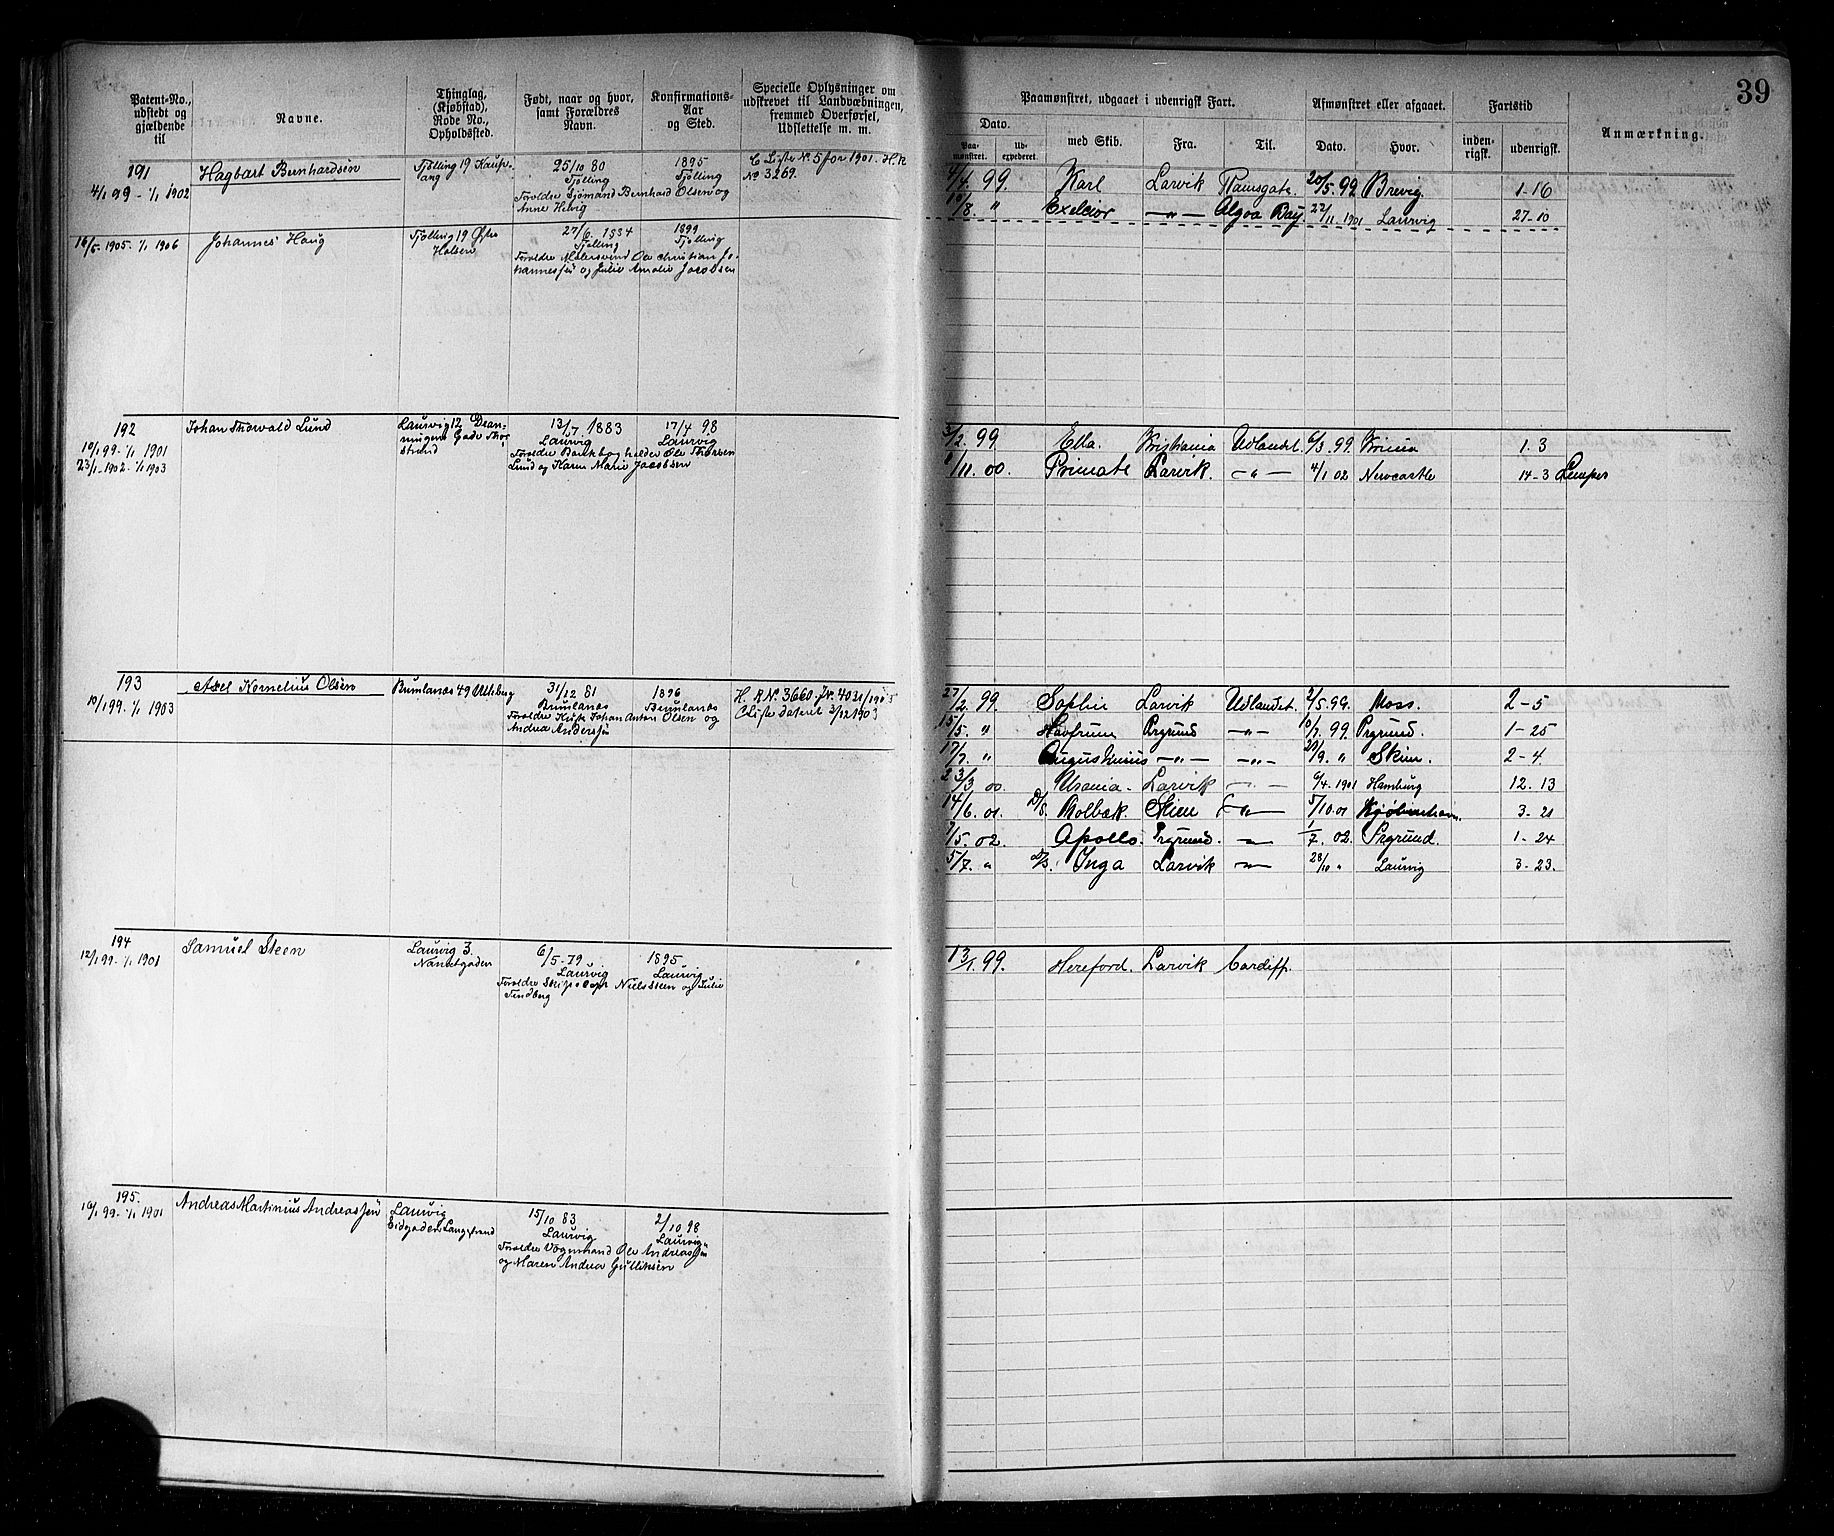 39
Patent-No., udstedt og gjældende til
Navne.
Thinglag, (Kjøbstad), Rode No., Opholdssted.
Født, naar og hvor, samt Forældres Navn.
Konfirmations-Aar og Sted.
Specielle Oplysninger om udskrevet til Landværningen, fremmed Overførsel, Udslettelse m. m.
Paamønstret, udgaaet i udenrigsk Fart.
Afmønstret eller afgaaet.
Fartstid
Anmærkning.
Dato.
Paa-mønstret.
Ud-expederet.
med Skib.
Fra.
Til.
Dato.
Hvor.
inden-rigsk.
udenrigsk.
191
4/1 99 - 1/1 1902
Hagbart Bernhardsen
Tjølling 19 Kaup-ang
25/10 80
Tjølling
Forældre Sjømand Bernhard Olsen og
Anne Helvig
1895
Tjølling
C Liste No 5 for 1901. H.R
No 3269.
4/4. 99. Karl Larvik Ramsgate. 20/5. 99 Brevig 1-16
10/8. " Exelcior —"— Algoa Bay 22/11. 1901 Laurvig 27-10
16/5. 1905. 1/1 1906
Johannes Haug
Tjølling 19 Østre
Halsen
27/6. 1884
Tjølling
Forældre Malersvend Ole Christian Jo-
hannessen og Julie Amalie Jacobsen
1899
Tjølling
192
10/1 99. 1/1 1901
23/1. 1902. 1/1 1903
Johan Thorvald Lund
Laurvig 12 Dron-
ningens Gade Thor
strand
13/7 1883
Laurvig
Forældre Bankbogholder Ole Thorsen
Lund og Karen Marie Jacobsen
17/4 98
Laurvig
3/2. 99 Ella. Kristiania Udlandet. 6/3 99. 1. 3
/11. 00. Primate Larvik. —"— 4/1 02 Newcastle 14-3
193
10/1 99. 1/1 1903
Axel Kornelius Olsen
Brunlanæs 49
31/12 81
Brunlanæs
Forældre Johan Anton Olsen og
Andrea Anderssen
1896
Brunlanæs
H. R No. 3660. Jr. 403 1/1 1903
C Liste datert 3/12 1903
27/2. 99. Sophie Larvik Udlandet. 2/5. 99. Moss. 2-5
15/5. " Havfruen Prgrund —"— 10/7. 99. Prgrund. 1-25
17/7. " Augustinius —"— —"— 29/9. " Skien. 2-4
23/3 00 Urania. Larvik 6/4. 1901 Hamburg 12. 13
14/6. 01. D/S. Molbæk. Skien —"— 5/10. 01 Kjøbenhavn. 3-21
7/5. 02. Apollo. Prgrund. —"— 1/7. 02. Prgrund. 1-24
5/7. " D/S. Inga Larvik —"— 28/10 " Laurvig 3-23.
194
12/1 99. 1/1 1901
Samuel Steen
Laurvig 3.
Nansetgaden
6/5. 79
Laurvig
Forældre Skibscapt Niels Steen og Julie
Tindberg
1895
Laurvig
13/1. 99. Hereford. Larvik Cardiff.
195.
16/1 99. 1/1 1901
Andreas Martinius Andreassen
Laurvig
Eidgaden, Langestrand
15/10 83
Laurvig
Forældre Vognmand Ole Andreassen
og Maren Andrea Gulliksen
2/10 98
Laurvig